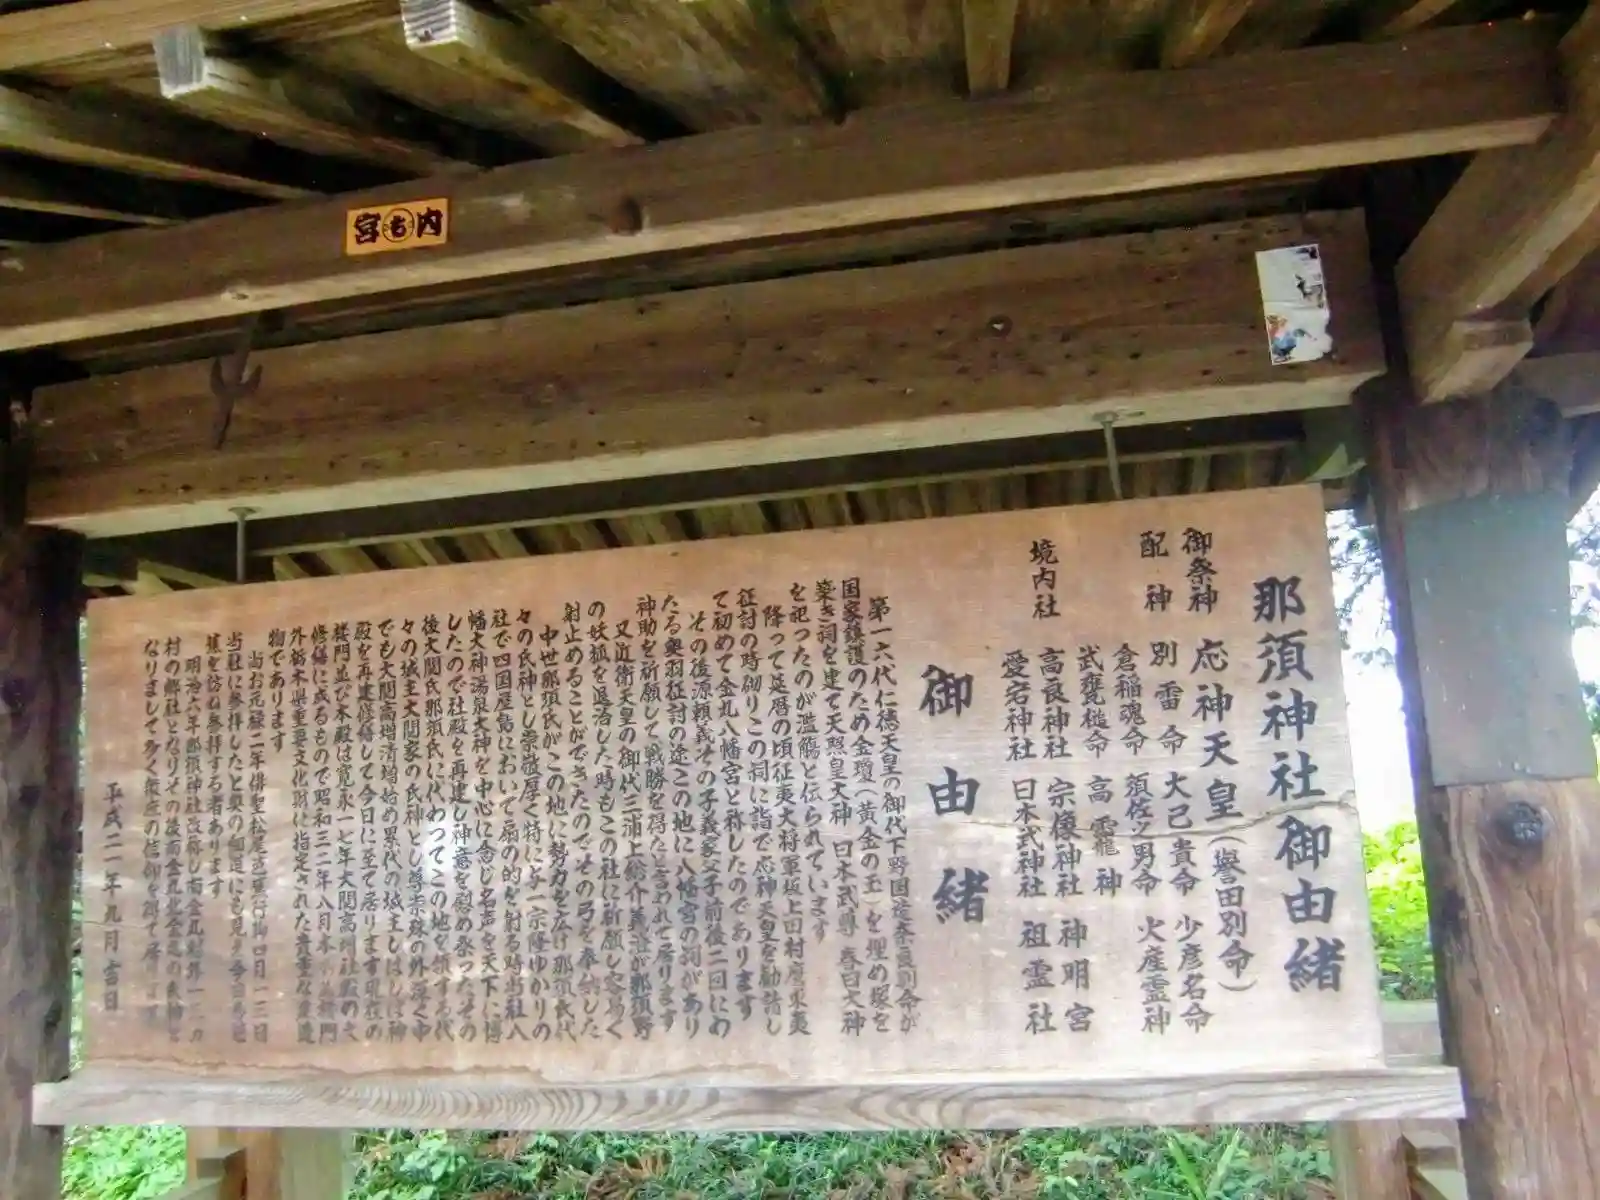 那須神社御由緒
御祭神 応神天皇(誉田別命)
配神 別雷命 大己貴命 少彦名命
倉稲魂命 須佐之男命 火産霊神
武甕槌命 高龗神
境内社 高良神社 宗像神社 神明宮
愛宕神社 日本武神社 祖霊社
御由緒
第一六代仁徳天皇の御代下野国造奈良別命が
国家鎮護のため金瓊(黄金の玉)を埋め塚を
築き祠を建て天照皇大神 日本武尊 春日大神
を祀ったのが濫觴と伝られています
降って延暦の頃征夷大将軍坂上田村麿東夷
征討の時砌りこの祠に詣で応神天皇を勧請し
て初めて金丸八幡宮と称したのであります
その後源頼義その子義家父子前後二回にわ
たる奥羽征討の途この地に八幡宮の祠があり
神助を祈願して戦勝を得たと言われて居ります
又近衛天皇の御代三浦上総介義澄が那須野
の妖狐を退治した時もこの社に祈願し容易く
射止めることができたのでその弓を奉納した
中世那須氏がこの地に勢力を広げ那須氏代
々の氏神とし崇敬厚く特に与一宗隆ゆかりの
社で四国屋島において扇の的を射る時当社八
幡大神湯泉大神を中心に念じ名声を天下に博
したので社殿を再建し神意を慰め祭ったその
後大関氏那須氏に代わってこの地を領する代
々の城主大関家の氏神とし尊崇殊の外深く中
でも大関高増清増始め累代の城主しばしば神
殿を再建修繕して今日に至て居ります現在の
楼門並び本殿は寛永一七年大関高増社殿の大
修繕に成るもので昭和三二年八月本殿楼門
外栃木県重要文化財に指定された貴重な建造
物であります
尚お元禄二年俳聖松尾芭蕉行脚四月一三日
当社に参拝したと奥の細道にも見え今日も芭
蕉を訪ね参拝する者あります
明治六年那須神社改称し南金丸村外一二カ
村の郷社となりその後南金丸北金丸の氏神と
なりまして多く衆庶の信仰を得て居ります
平成二一年九月吉日
内 宮